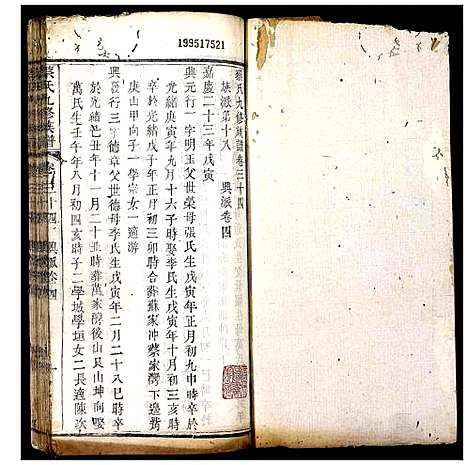 199517521
蔡氏九修族譜卷三十四
族派第十八　興派卷四
嘉慶二十三年戊寅
興元行一字明玉父世榮母張氏生戊寅年正月初九申時卒於
光緒庚寅年九月十六子時娶李氏生戊寅年十月初三亥時
卒於光緒戊子年正月初三卯時合葬蘇家沖蔡家灣下邊
庚山甲向子一學宗女一適游
興 行三字德章父世德母李氏生戊寅年二月二十八巳時卒
於光緒己丑年十一月二十丑時葬萬家灣後山艮山坤向
萬氏生壬午年八月初四亥時子二學城學垣女二長適陳次
蔡氏九修族譜
卷三十四
興派卷四